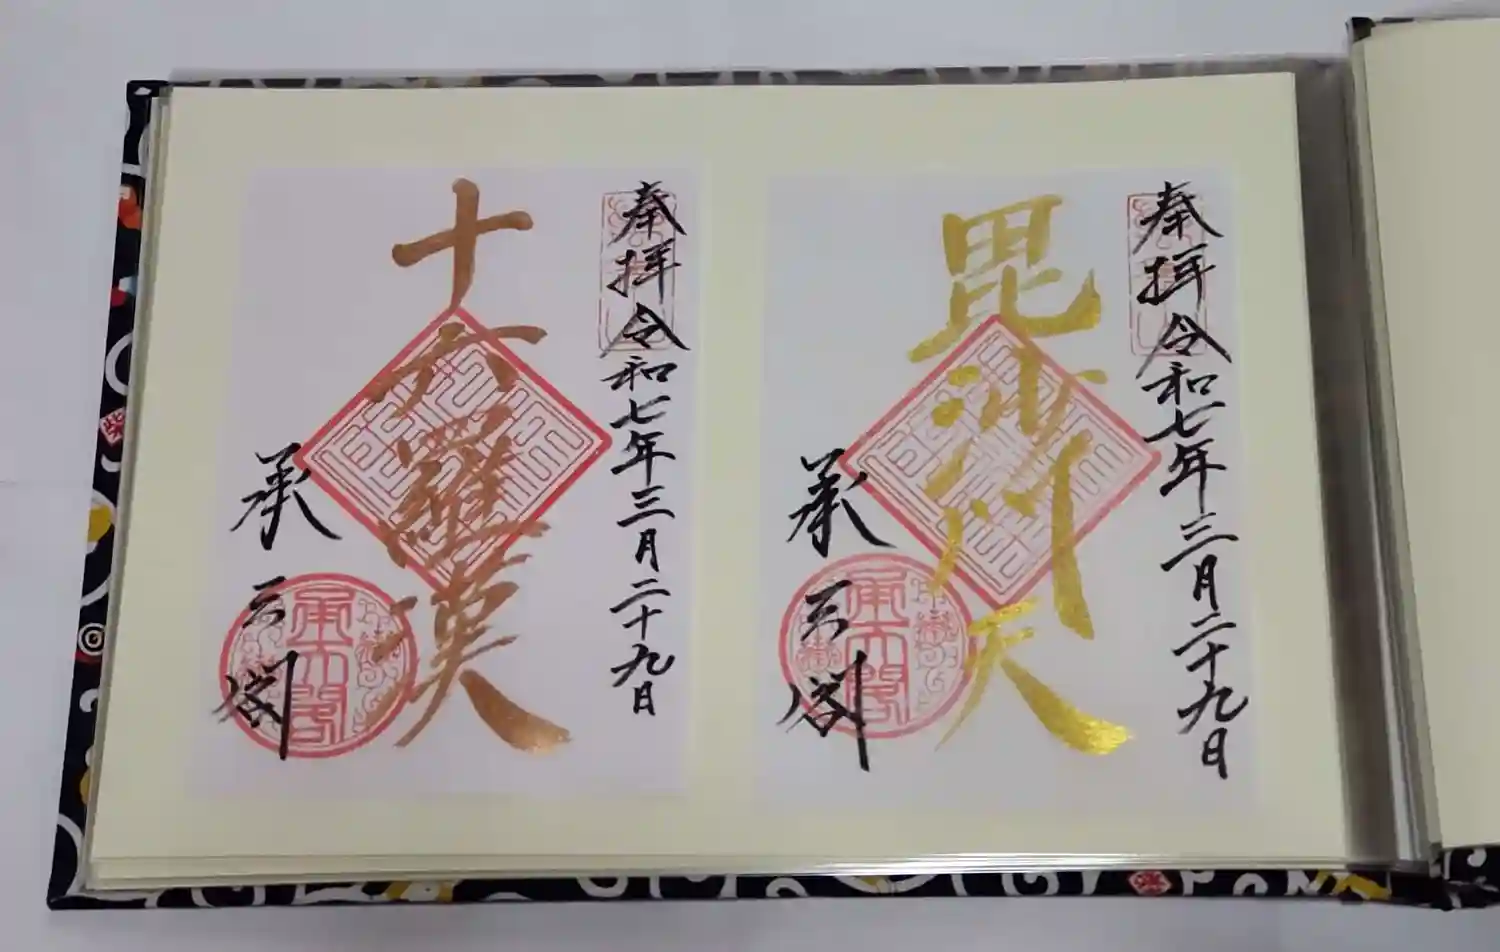 奉拝 令和七年三月二十九日
毘沙門天
承天閣
奉拝 令和七年三月二十九日
十六羅漢
承天閣